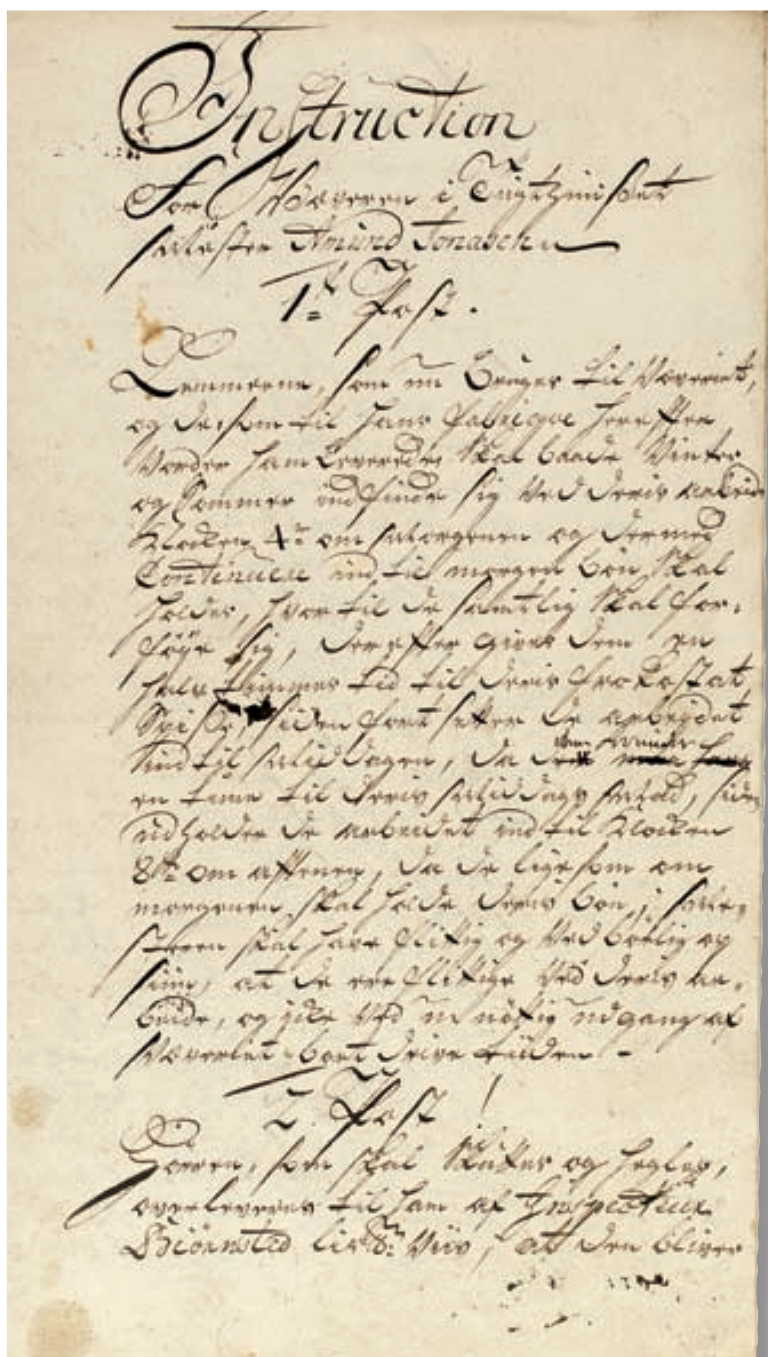 Instruction
For Væveren i Tugthuuset
Mæster Amund Jonasen
1te Post.
Lemmerne, som nu bruges til Væveriet,
og de som til hans Fabriqve herefter
Vorder ham Leverede, skal baade Vinter
og Sommer indfinde sig ved deris arbeide
Klocken 4re om Morgenen og dermed
Continuere indtil morgen bøn skal
holdes, hvortil de samtlig skal for-
føye sig, derefter gives dem en
halv Times tid til deris frokost at
Spise, siden fortsetter de arbeydet
indtil Middagen, da
en time til deris Middags Maad, siden
udholder de arbeidet indtil Klocken
8te om aftenen, da de ligesom om
morgenen skal holde deris bøn; Mæ-
steren skal have flittig og Vedbørlig op
siun, at de ere flittige ved deris ar-
beide, og icke ved unøttig udgang af
Væveriet bort drive tiiden -
2. Post
Hørren, som skal Skættes og hegles,
overleveres til ham af Inspecteur
Biørnsted Viis, at den bliver